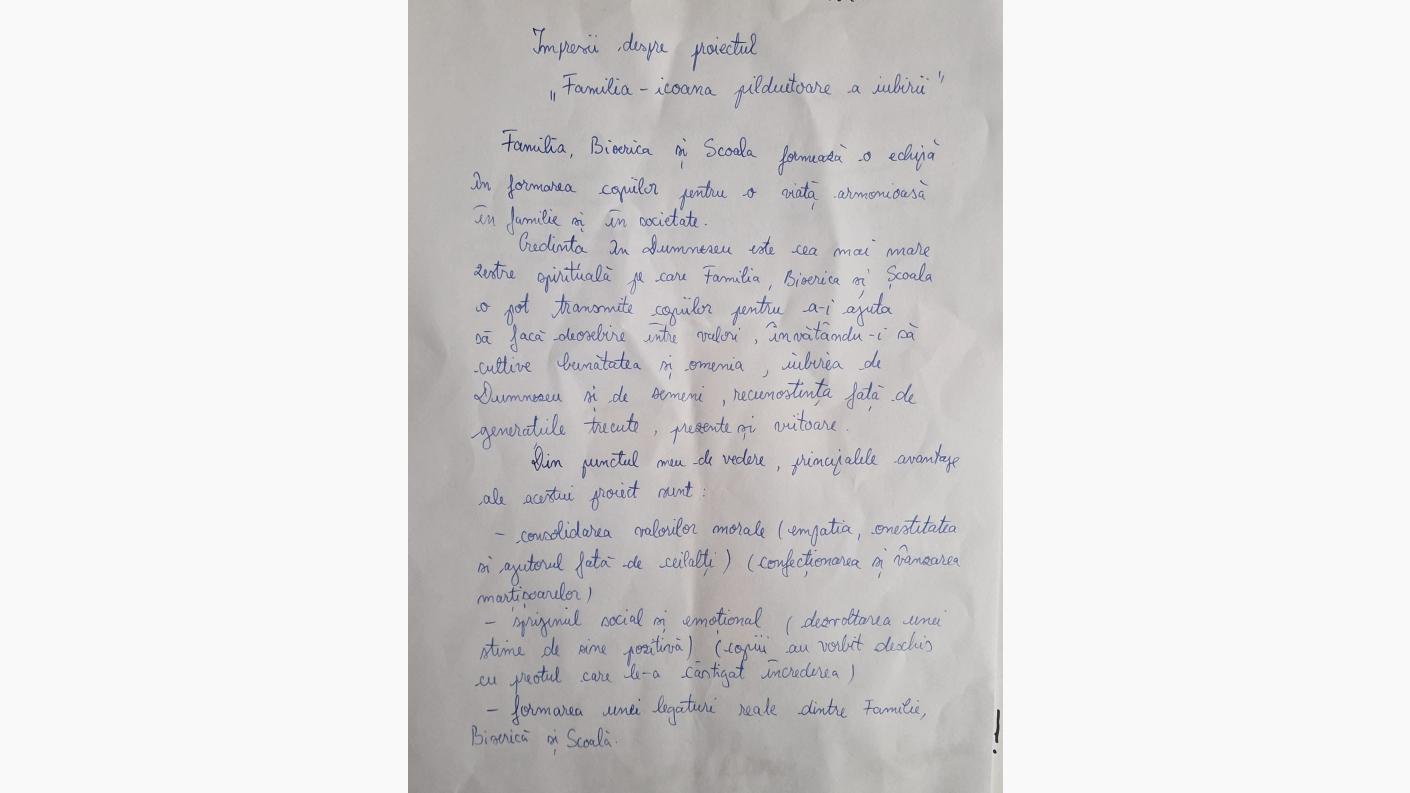 Impresii despre proiectul
„Familia – icoana pilduitoare a iubirii"
Familia, Biserica și Scoala formează o echipă
în formarea copiilor pentru o viață armonioasă
în familie și în societate.
Credinta în Dumnezeu este cea mai mare
zestre spirituală pe care Familia, Biserica și Școala
o pot transmite copiilor pentru a-i ajuta
să facă deosebire între valori, învătându-i să
cultive bunătatea și omenia, iubirea de
Dumnezeu și de semeni, recunostința față de
generatiile trecute, prezente și viitoare.
Din punctul meu de vedere, principalele avantaje
ale acestui proiect sunt:
– consolidarea valorilor morale (empatia, onestitatea
si ajutorul fată de ceilalți) (confecționarea și vânzarea
marțișoarelor)
– sprijinul social și emoțional (dezvoltarea unei
stime de sine pozitivă) (copiii au vorbit deschis
cu preotul care le-a câstigat încrederea)
– formarea unei legaturi reale dintre Familie,
Biserică și Scoală.